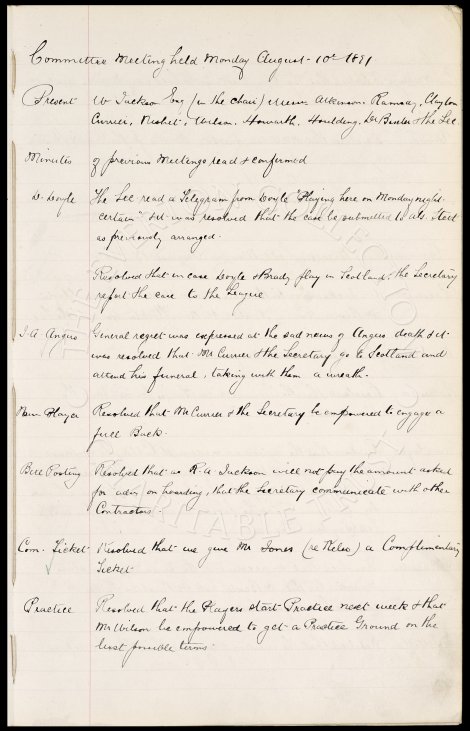 Committee Meeting held Monday August 10th 1891
Present W Jackson Esq (in the chair) Messrs Atkinson, Ramsay, Clayton
Currier, Nisbet, Wilson, Howarth, Houlding, Dr Baxter & the Sec.
Minutes of previous Meetings read & confirmed
D. Doyle The Sec read a Telegram from Doyle "Playing here on Monday night
certain" & it was resolved that the case be submitted to
as previously arranged.
Resolved that in case Doyle & Brady play in Scotland, the Secretary
report the case to the League
J A Angus General regret was expressed at the sad news of Angus death & it
was resolved that Mr Currier & the Secretary go to Scotland and
attend his funeral, taking with them a wreath.
New Player Resolved that Mr Currier & the Secretary be empowered to engage a
full Back.
Bill Posting Resolved that as R. A Jackson will not pay the amount asked
for advs on hoarding, that the Secretary communicate with other
Contractors.
Com. Ticket Resolved that we give Mr Jones a Complimentary
Ticket
Practice Resolved that the Players start Practice next week & that
Mr Wilson be empowered to get a Practice Ground on the
best possible terms.